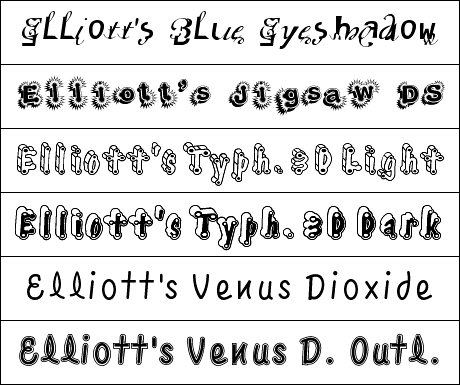 Elliott's Blue Eyeshadow
Elliott's Jigsaw DS
Elliott's Typh. 3D Light
Elliott's Typh. 3D Dark
Elliott's Venus Dioxide
Elliott's Venus D. Outl.